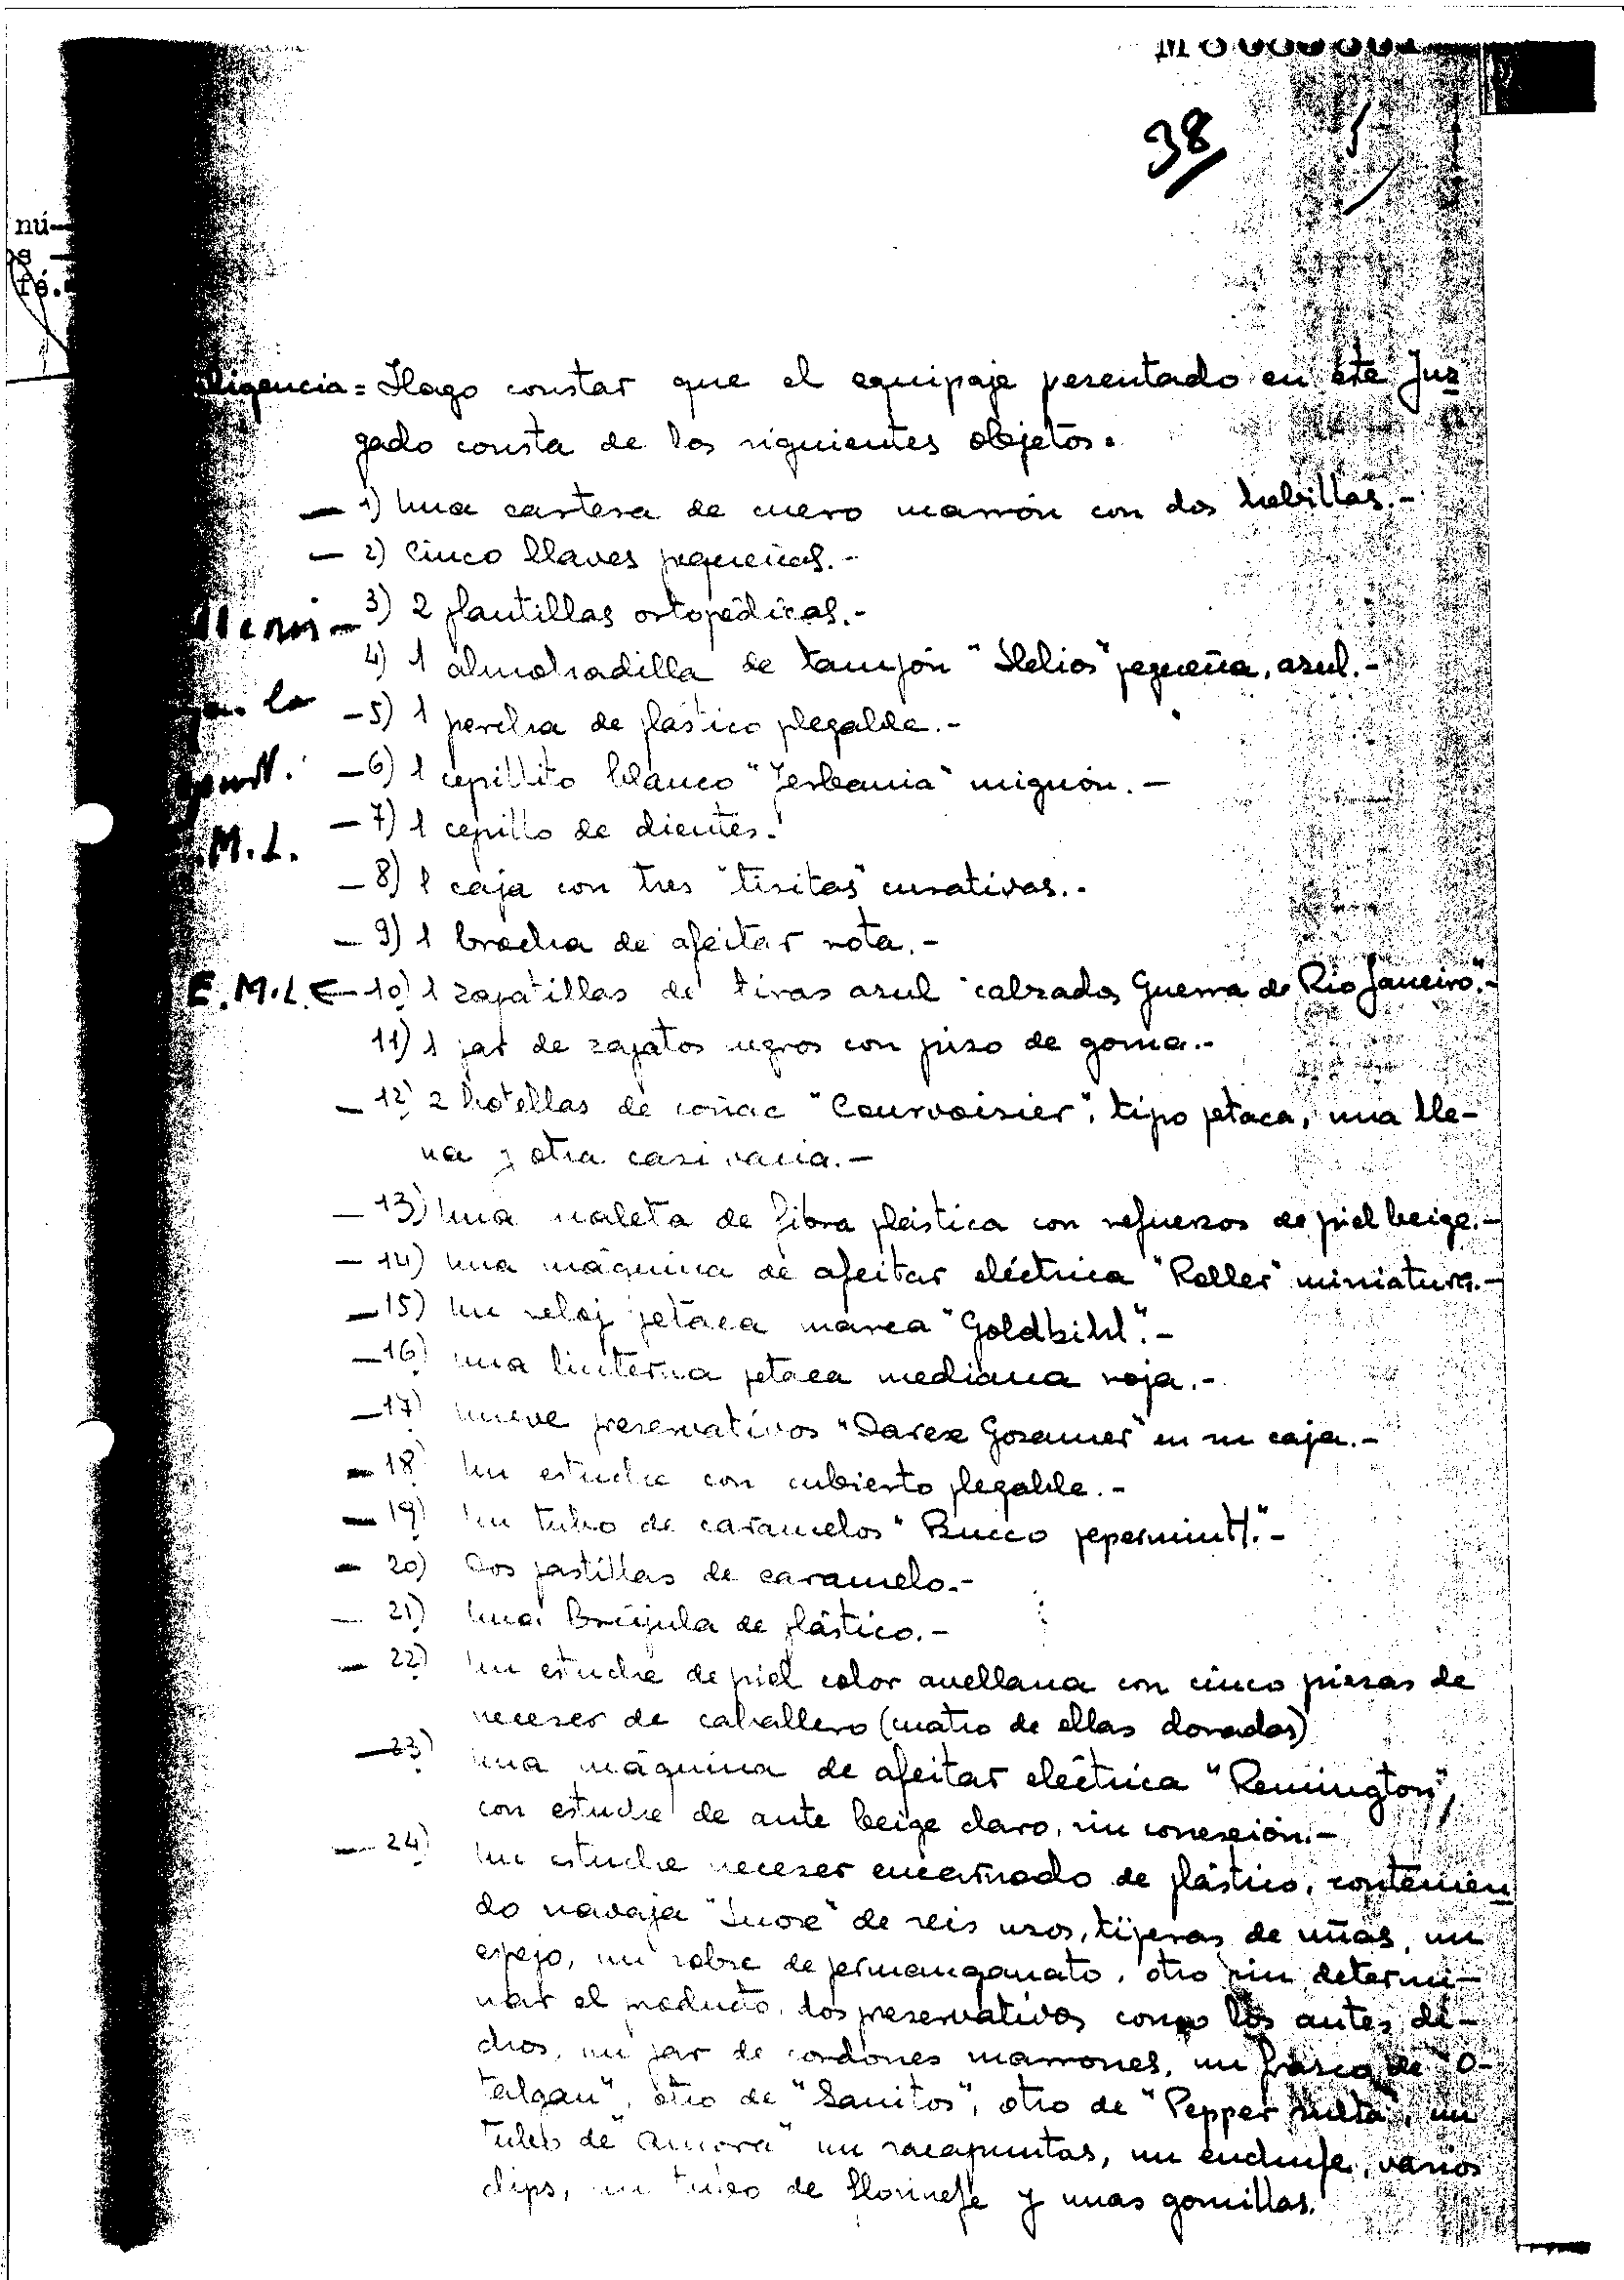 38
nú-
s -
fé.
Diligencia = Hago constar que el equipaje pesentado en éste Juz
gado consta de los siguientes objetos.
— 1) Una cartera de cuero marrón con dos hebillas.-
— 2) Cinco llaves pequeñas.-
— 3) 2 plantillas ortopédicas.-
4) 1 almohadilla de tampón "Helios" pequeña, azul.-
— 5) 1 percha de plástico plegable.-
— 6) 1 cepillito blanco "Jerbania" mignón.-
— 7) 1 cepillo de dientes.-
M.L.
— 8) 1 caja con tres "tiritas" curativas.-
— 9) 1 brocha de afeitar rota.-
E.M.L. — 10) 1 zapatillas de tiras azul "calzados Guerra de Rio Janeiro".-
11) 1 par de zapatos negros con piso de goma.-
— 12) 2 botellas de coñac "Courvoisier", tipo petaca, una lle-
na y otra casi vacia.-
— 13) Una maleta de fibra plástica con refuerzos de piel beige.-
— 14) Una máquina de afeitar eléctrica "Roller" miniatura.-
— 15) Un reloj petaca marca "Goldbihl".-
— 16) Una linterna petaca mediana roja.-
— 17) Nueve preservativos "Darex Gosamer" en su caja.-
— 18) Un estuche con cubierto plegable.-
— 19) Un tubo de caramelos "Bucco pepermint".-
— 20) Dos pastillas de caramelo.-
— 21) Una Brújula de plástico.-
— 22) Un estuche de piel color avellana con cinco piezas de
neceser de caballero (cuatro de ellas doradas)
— 23) Una máquina de afeitar eléctrica "Remington",
con estuche de ante beige claro, sin conexión.-
— 24) Un estuche neceser encarnado de plástico, contenien
do navaja de seis usos, tijeras de uñas, un
espejo, un sobre de permanganato, otro sin determi-
nar el producto, dos preservativos como los antes di-
chos, un par de cordones marrones, un frasco de "O-
talgan", otro de "Sanitos", otro de "Pepper , un
tubo de un sacapuntas, un enchufe, varios
clips, un tubo de y unas gomillas.